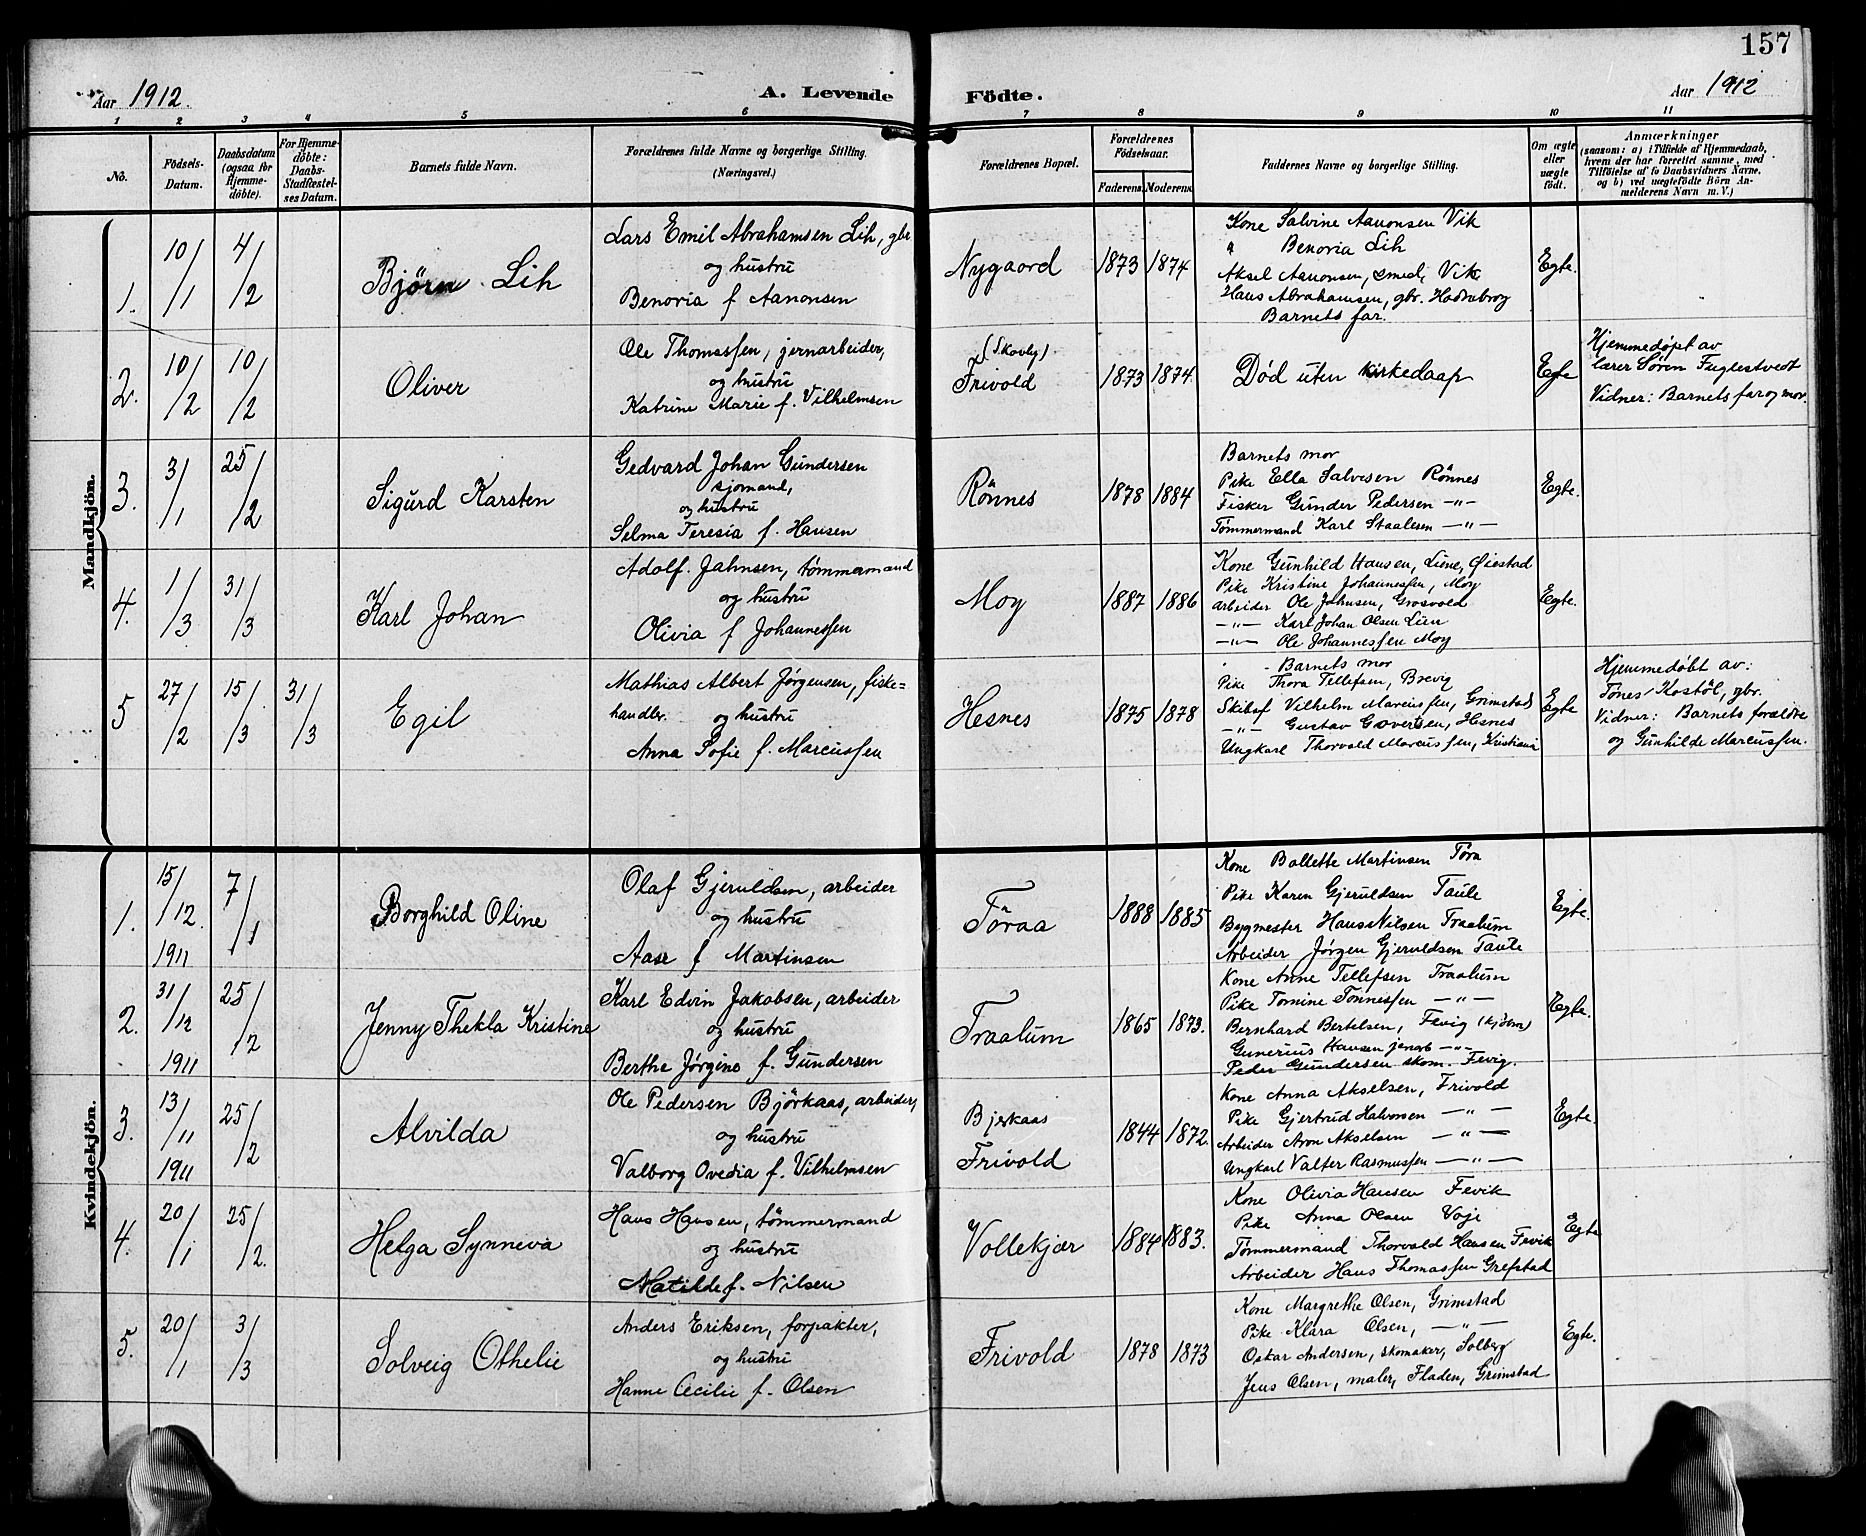 157
Aar 1912. A. Levende Födte. Aar 1912
1 2 3 4 5 6 7 8 9 10 11
No. Födsels-Datum. Daabsdatum (ogsaa for Hjemmedöbte). For Hjemmedöbte: Daabs-Stadfæstelses Datum. Barnets fulde Navn. Forældrenes fulde Navne og borgerlige Stilling. (Næringsvei.) Forældrenes Bopæl. Forældrenes Födselsaar. Faderens. Moderens. Faddernes Navne og borgerlige Stilling. Om ægte eller uægte födt. Anmærkninger (saasom: a) i Tilfælde af Hjemmedaab, hvem der har forrettet samme, med Tilföielse af to Daabsvidners Navne, og b) ved uægtefödte Börn Anmelderens Navn m. V.)
Mandkjön.
1. 10/1 4/2 Bjørn Lih
Lars Emil Abrahamsen Lih, gbr
og hustru
Benoria f Aanonsen
Nygaord 1873 1874
Kone Salvine Aanonsen Vik
" Benoria Lih
Aksel Aanonsen, smed, Vik
Hans Abrahamsen, gbr.
Barnets far.
Egte.
2. 10/2 10/2 Oliver
Ole Thomassen, jernarbeider,
og hustru
Katrine Marie f. Vilhelmsen
(Skovly)
Frivold 1873 1874.
Død uten kirkedaap
Egte
Hjemmedøpt av
lærer Søren Fuglestvedt
Vidner: Barnets far og mor.
3. 3/1 25/2 Sigurd Karsten
Gedvard Johan Gundersen
sjømand,
og hustru
Selma Teresia f. Hansen
Rönnes 1878 1884
Barnets mor
Pike Ella Salvesen Rönnes
Fisker Gunder Pedersen —"—
Tømmermand Karl Staalesen —"—
Egte.
4. 1/3 31/3 Karl Johan
Adolf Jahnsen, tømmermand
og hustru
Olivia f Johannessen
Moy 1887 1886
Kone Gunhild Hansen, Liene, Øiestad
Pike Kristine Johannessen, Moy
arbeider Ole Johnsen, Grosvold
—"— Karl Johan Olsen Lien
—"— Ole Johannessen Moy
Egte.
5 27/2 15/3 31/3 Egil
Mathias Albert Jørgensen, fiske=
handler. og hustru
Anna Sofie f. Marcussen
Hesnes 1875 1878
Barnets mor
Pike Thora Tellefsen, Brevig
Skibsf Vilhelm Marcussen, Grimstad
—"— Gustav Govertsen, Hesnes
Ungkarl Thorvald Marcussen, Kristiania
Egte
Hjemmedøbt av:
Tønes Kostöl, gbr.
Vidner: Barnets forældre
og Gunhilde Marcussen.
Kvindekjön.
1. 15/12. 1911 7/1 Borghild Oline
Olaf Gjeruldsen, arbeider
og hustru
Aase f Martinsen
Töraa 1888 1885
Kone Bollette Martinsen Töra
Pike Karen Gjeruldsen Taule
Bygmester Hans Nilsen Traalum
Arbeider Jørgen Gjeruldsen Taule
Egte.
2. 31/12 1911 25/2 Jenny Thekla Kristine
Karl Edvin Jakobsen, arbeider
og hustru
Berthe Jørgine f. Gundersen
Traalum 1865 1873.
Kone Anne Tellefsen Traalum
Pike Tomine Tønnessen —"—
Bernhard Bertelsen, Fevig (kjöbm)
Gunerius Hansen jernb —"—
Peder Gundersen skom. Fevig.
Egte.
3. 13/11 1911 25/2 Alvilda
Ole Pedersen Björkaas, arbeider,
og hustru
Valborg Ovedia f. Vilhelmsen
Bjerkaas
Frivold 1844 1872.
Kone Anna Akselsen, Frivold
Pike Gjertrud Halvorsen —"—
Arbeider Aron Akselsen —"—
Ungkarl Valter Rasmussen —"—
Egte.
4. 20/1 25/2. Helga Synneva
Hans Hansen, tømmermand
og hustru
Matilde f. Nilsen
Vollekjær 1884 1883.
Kone Olivia Hansen Fevik
Pike Anna Olsen Voje
Tømmermand Thorvald Hansen Fevik
Arbeider Hans Thomassen Grefstad
Egte
5. 20/1 3/3 Solveig Othelie
Anders Eriksen, forpakter,
og hustru
Hanne Cecilie f. Olsen
Frivold 1878 1873
Kone Margrethe Olsen, Grimstad
Pike Klara Olsen, —"—
Oskar Andersen, skomaker, Solberg
Jens Olsen, maler, Fladen, Grimstad
Egte.